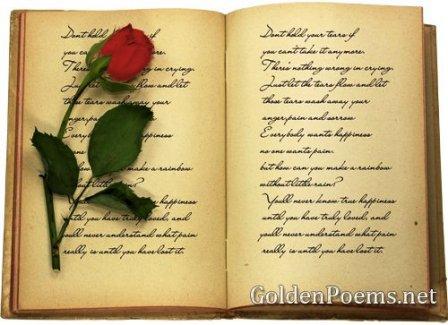 Dont hold your tears if
you cant it anymore.
There in crying.
Just let the tears flow and let
those tears wash away your
anger,pain and sorrow
happiness
make a rainbow
without little
happiness
until you have truly loved, and
you'll never understand what pain
really is until you have lost it.
Dont hold your tears if
you cant take it anymore.
There's nothing wrong in crying.
Just let the tears flow and let
those tears wash away your
anger,pain and sorrow
Everybody wants happiness
no one wants pain.
but how can you make a rainbow
without little rain?
You'll never know true happiness
until you have truly loved, and
you'll never understand what pain
really is until you have lost it.
GoldenPoems.net